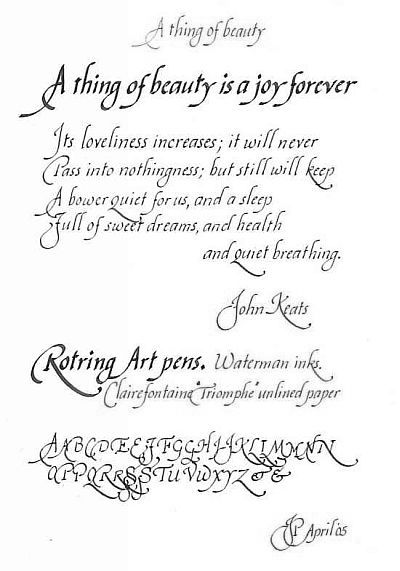 A thing of beauty
A thing of beauty is a joy forever
Its loveliness increases; it will never
Pass into nothingness; but still will keep
A bower quiet for us, and a sleep
Full of sweet dreams, and health
and quiet breathing.
John Keats
Rotring Art pens. Waterman inks.
Clairefontaine "Triomphe" unlined paper
AABCDEEFFGGHIJJKLLMMNN
QPPQRRSSTUVWXYZ & &
JP April '05